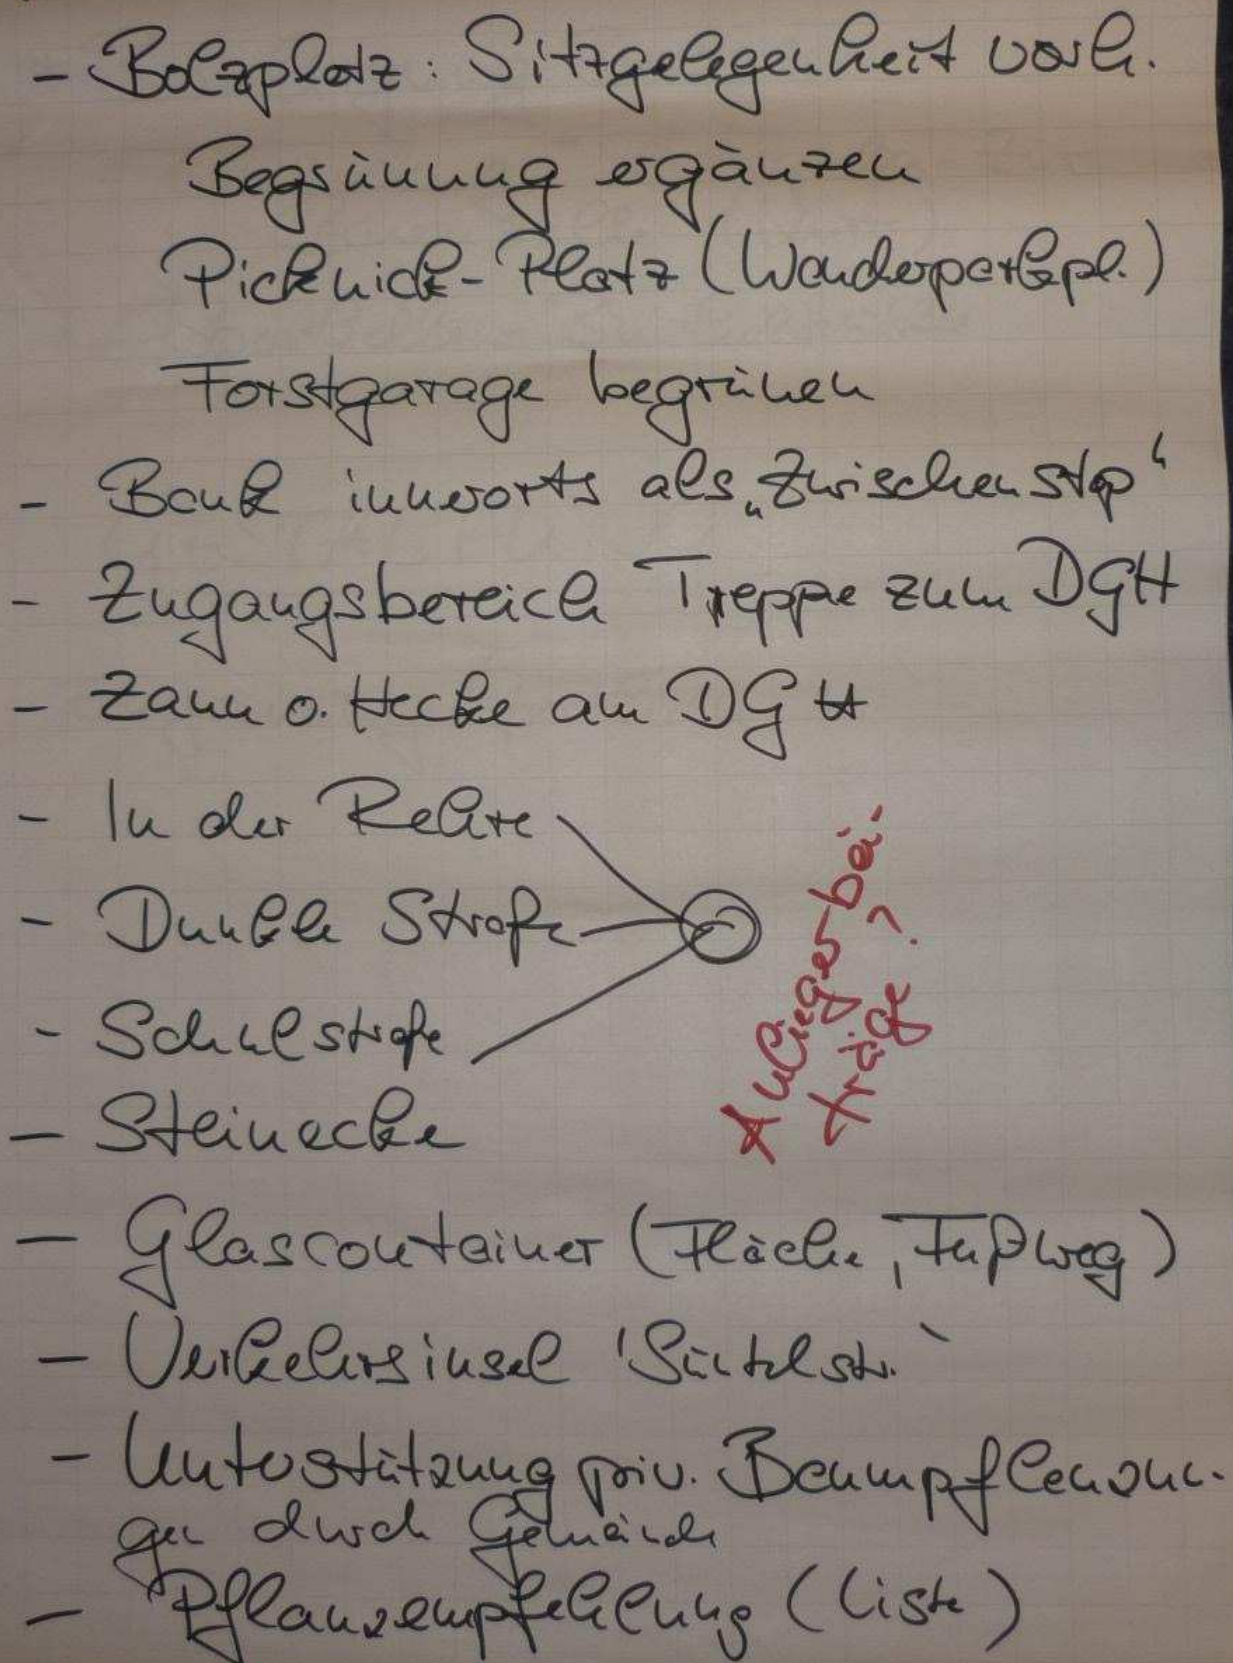 - Bolzplatz: Sitzgelegenheit vorh.
Begrünung ergänzen
Picknick-Platz (Wanderparkpl.)
Forstgarage begrünen
- Bank innerorts als „Zwischenstop“
- Zugangsbereich Treppe zum DGH
- Zaun o. Hecke am DGH
- In der Rehre
- Dunkle Straße
- Schulstraße
Anliegerbei-
träge?
- Steinecke
- Glascontainer (Fläche, Fußweg)
- Verkehrsinsel 'Süntelstr.'
- Unterstützung priv. Baumpflanzun-
gen durch Gemeinde
- Pflanzempfehlung (Liste)